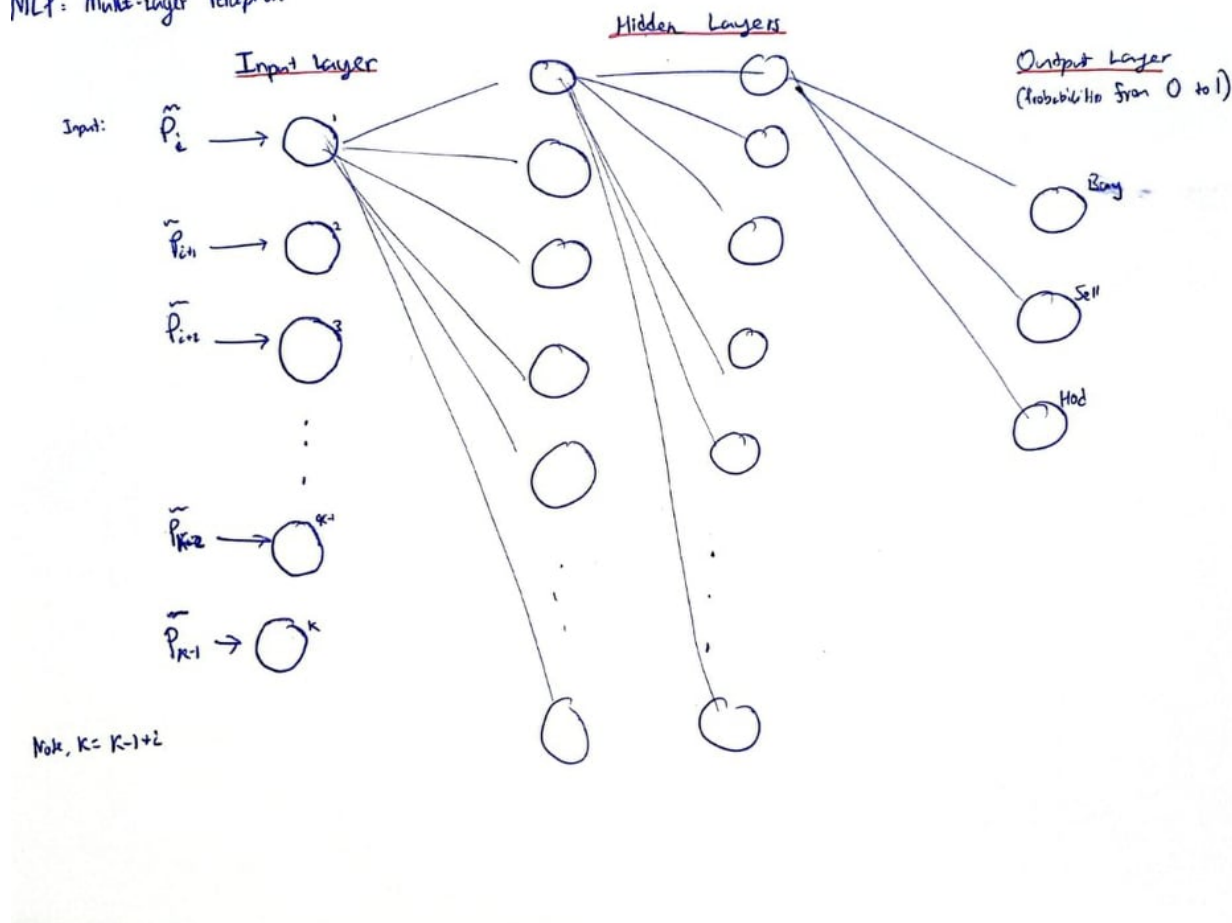 MLP: Multi-Layer Percep
Hidden Layers
Input Layer
Output Layer
(Probabilitis from 0 to 1)
Input:
P̃ᵢ
1
P̃ᵢ₊₁
2
P̃ᵢ₊₂
3
P̃
K-1
P̃ₖ₋₁
K
Buy
Sell
Hod
Note, K= K-1+i